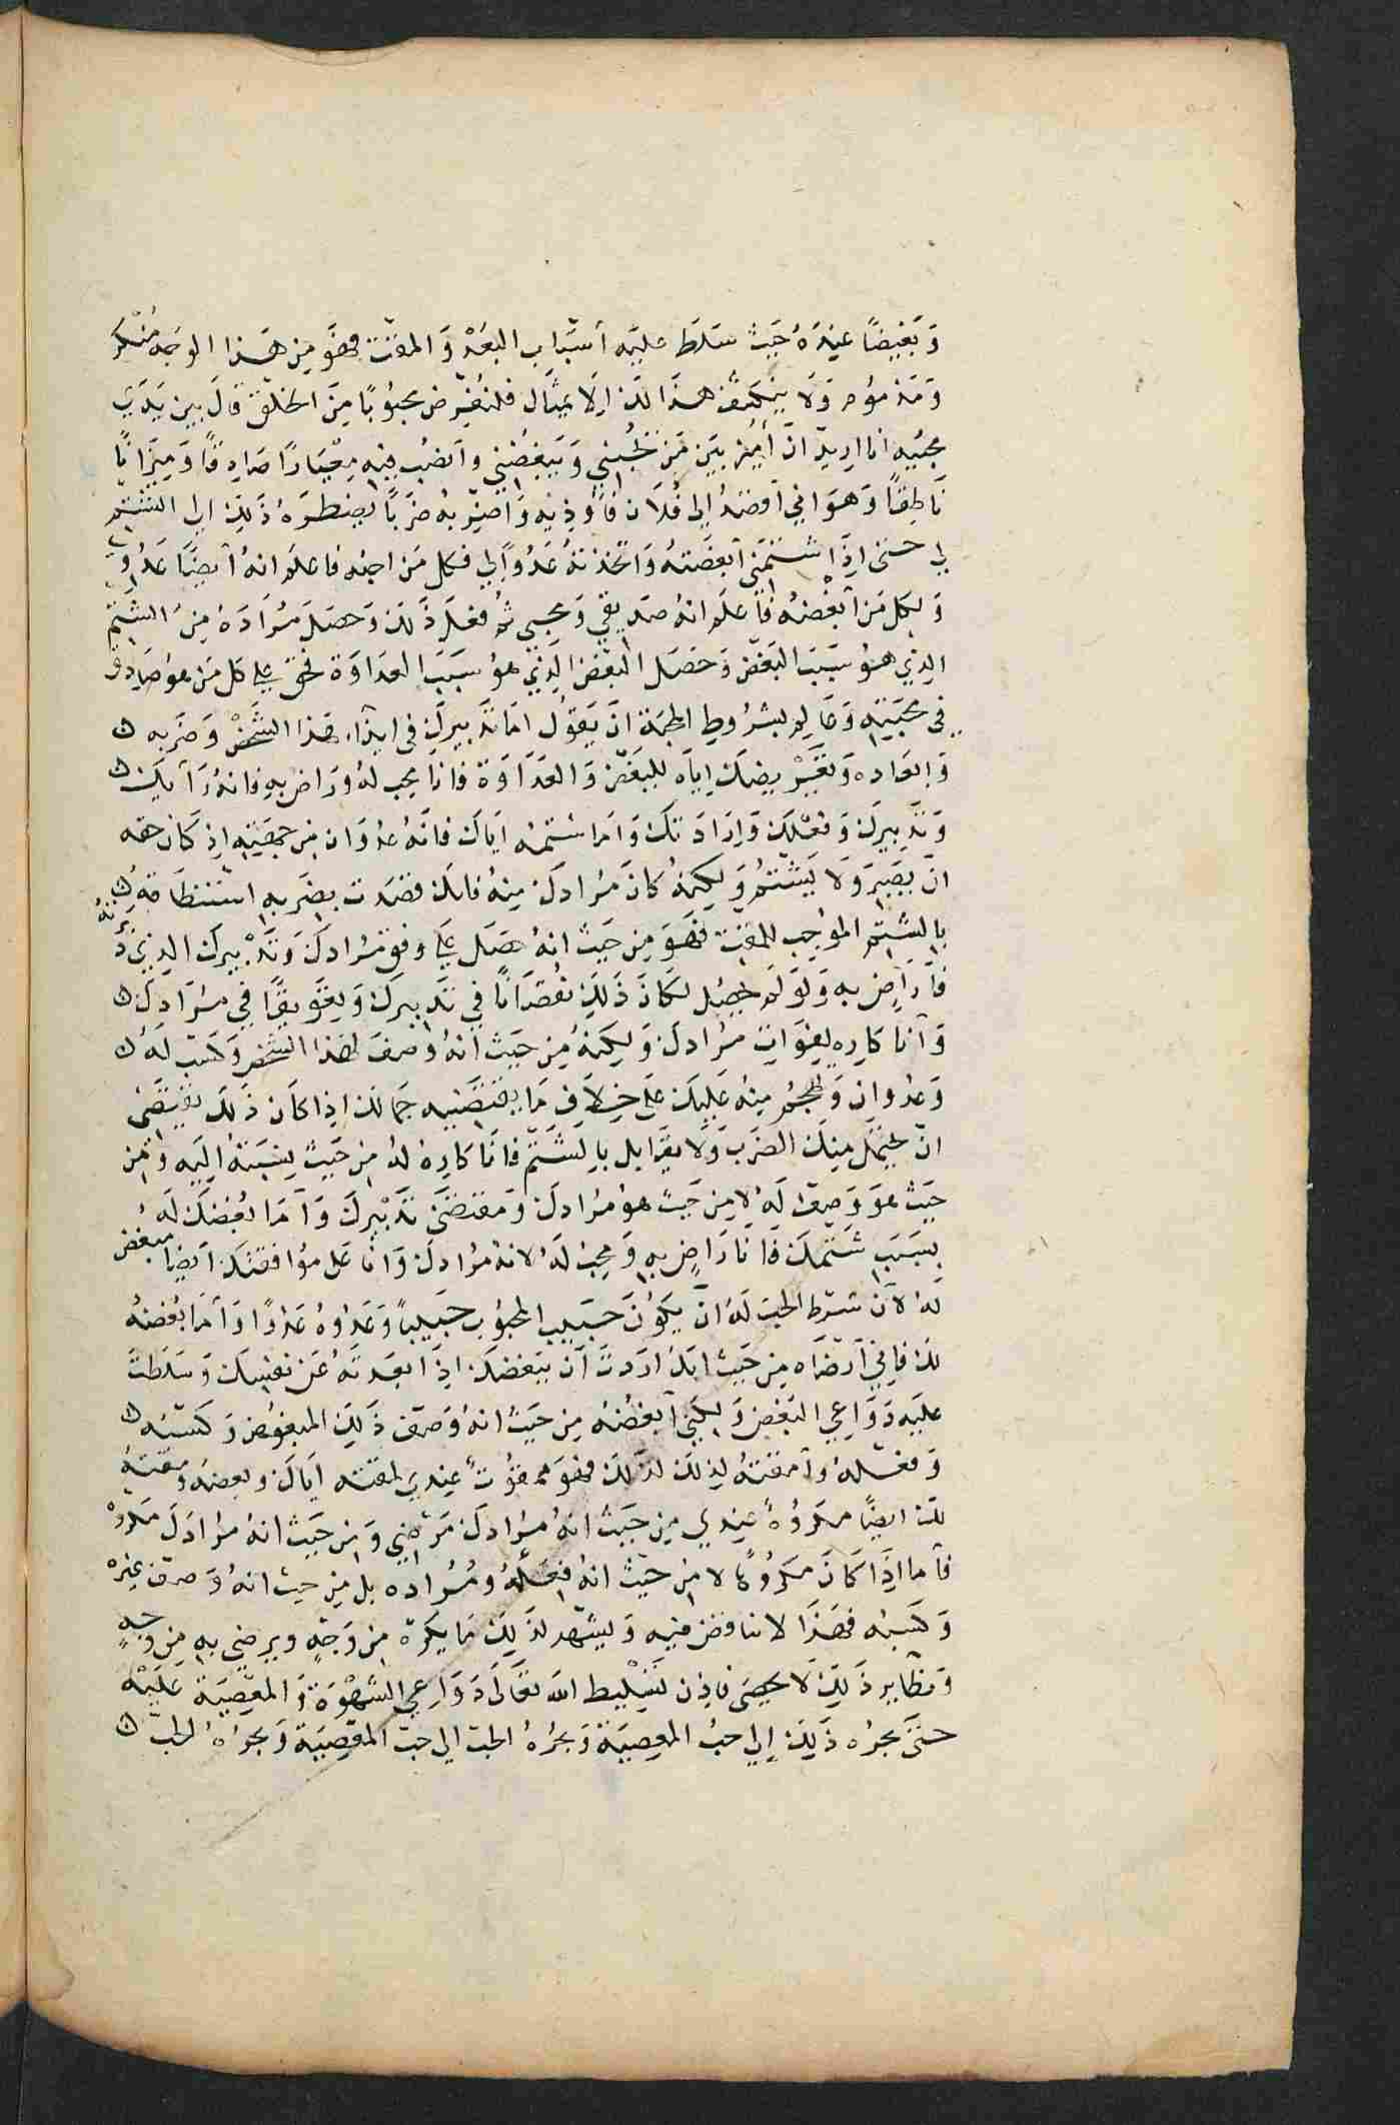 وَبَغيضًا عِندَهُ حَيث سَلطَ عليَه أسبَاب البعد وَالمقت فهوَ مِن هَذا الوجه مُنكر
وَمَذمُوم وَلَا ينكَشف هذَا لكَ إلَا بمثَال فلنفرِض محبُوبًا مِنَ الخلق قالَ بين يَدَي
محبّيه انا اريد ان أميّز بَين مَن يحُبني وَيَبغضني وأنصُب فيه مِعْيَارًا صَادِقًا وَمِيزَانًا
نَاطِقًا وَهوَ اني أقصدُ إلى فُلَان فأوذيه وَاضرِبهُ ضَربًا يضطرهُ ذَلِك الى الشتم
لي حَتى اذَا شتمَني أبغضَته وَاتخذتهُ عَدُوًّا لي فكل مَن احبّه فاعلَم انهُ أيضًا عَدُوّي
وَكل مَن أبغضهُ فاعلَم انهُ صَديقي وَمحبي ثم فعلَ ذلك وَحصَلَ مُرَادَهُ مِنَ الشتم
الذي هُوَ سَبَب البَغض وَحَصَل البغض الذي هوَ سَبَب العدَاوَة فحق على كل مَن هوَ صَادق
في محَبتِه وَعَالم بشرُوط المحبة ان يَقوُل امَا تَدبيرك في ايذاء هَذا الشخص وَضَربه
وَابعَاده وَتعريضكَ ايَاه للبَغض وَالعَدَاوَة فانا محب لهُ ورَاض به فانهُ رَأيكَ
وَتَدبيركَ وَفعلكَ وَإرَادَتكَ وَامَا شتمه ايَاكَ فانَه عدوَان مِن جهَته اذ كان حقه
ان يَصبر وَلَا يَشتم وَلكِنهُ كان مُرَادكَ مِنهُ فانك قصَدت بضَربه استنطَاقهُ
بالشتم الموجب للمقت فهوَ مِن حَيث انهُ حصَل عَلى وفق مُرَادكَ وَتَدبيركَ الذي دبّرتهُ
فأنا رَاضٍ بهِ وَلَو لَم يحصُل لكانَ ذَلكَ نقصَانًا في تَدبيركَ وَتعويقًا في مُرَادكَ
وَأنا كاره لفوَات مُرَادكَ وَلكِنهُ مِن حَيث انهُ وَصفَ لهذا الشخص وَكسَب لَهُ
وَعدوَان وَتهجم مِنهُ عَليكَ عَلى خِلَاف مَا يقتضيه جَمالك اذا كانَ ذَلكَ يقتضى
ان يحتمل مِنكَ الضَرب وَلا يقابل بالشتم فانَا كاره لهُ مِن حَيث نسبَتهُ اليَه وَمِن
حَيث هوَ وَصف لَهُ لا مِن حَيث هوَ مُرَادكَ وَمقتضى تَدبيركَ وَأمَا بُغضكَ لَهُ
بسَبَب شَتمكَ فانَا رَاضٍ بهِ وَمحِبّ لَهُ لانهُ مرَادكَ وَانَا عَلى موَافقتكَ أيضا مبغض
لَهُ لأنّ شرط المحب لَهُ ان يَكوُن حَبيب المحبُوب حَبيبًا وَعَدُوهُ عَدُوًا وَأمَا بُغضهُ
لك فاني أرضَاه مِن حَيث انكَ ارَدتَ أن يبغضكَ اذَا ابعَدتَهُ عَن نفسِكَ وَسَلَطتَ
علَيه دَوَاعِي البَغض وَلكِني أبغضهُ مِن حَيث انهُ وَصف ذَلِكَ المبغوض وَكسبه
وَفعلهُ وأمقتهُ لذلكَ فهوَ ممقوُتٌ عِندي لمقته ايَاكَ وبغضه ومقتهُ
لكَ ايضًا مكرُوهٌ عِندي مِن حَيث انهُ مُرَادكَ مَرضي وَمِن حَيث انهُ مُرَادكَ مَكروْ
فأما اذَا كانَ مَكرُوهًا لا مِن حَيث انهُ فِعلهُ ومُرَادهُ بل مِن حيث انهُ وَصف غيرهْ
وَكسبه فهذَا لا تناقض فيه وَيشهَد لذَلِكَ مَا يكره مِن وَجهٍ ويرضى بهِ مِن وَجهٍ
وَنظَاير ذَلِكَ لَا تحصَى فاذن تَسْليط الله تعَالَى دَوَاعِي الشهوَة وَالمعصِيَة عَلَيْه
حَتى يجرُه ذَلِكَ إلى حبُ المعصِيَة وَيجُرهُ الحب الى حب المعصِيَة وَيجرهُ الحب